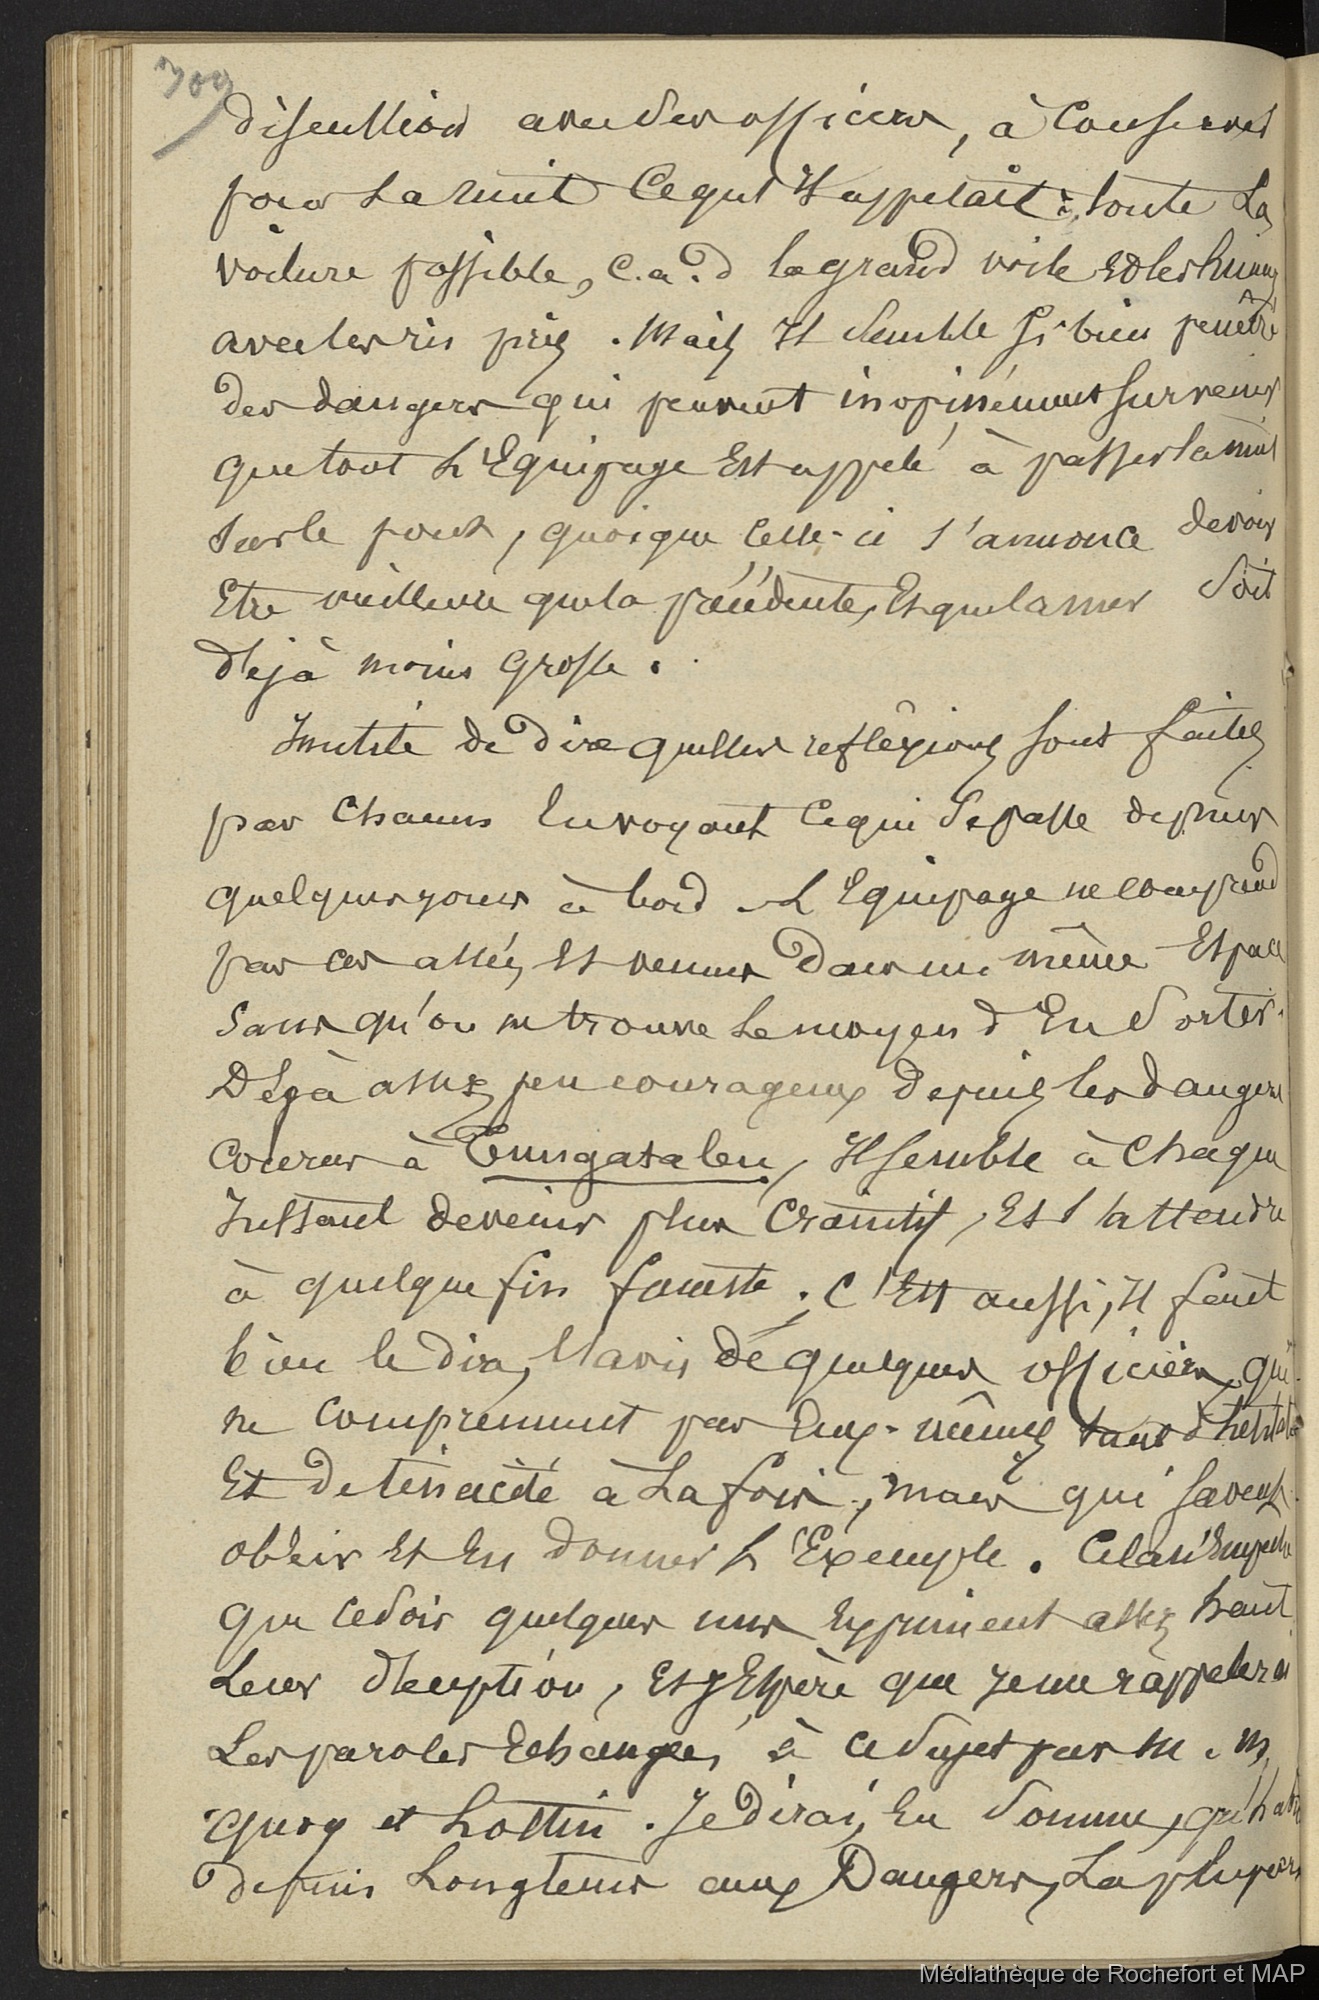 709
discussion avec ses officiers, à conserver
pour La nuit Ce qu'Il appelait : toute La
voilure possible, c.a.d la grand voile et les huniers
avec les ris pris. Mais Il semble si bien pénétré
des dangers qui peuvent inopinément survenir
que tout L'Equipage Est appelé à passer la nuit
sur le pont, quoique celle-ci s'annonce devoir
Etre meilleure que la précédente, Et que la mer soit
déjà moins grosse.
Inutile de dire quelles reflexions sont faites
par Chacun En voyant Ce qui Se passe depuis
quelques jours à bord. L'Equipage ne comprend
pas ces allés Et venues Dans un même Espace
Sans qu'on ne trouve Le moyen d'En Sortir.
Déjà assez peu courageux Depuis les dangers
Courus à Tungatabou, Il semble à Chaque
Instant devenir plus Craintif, Et s'attendre
à quelque fin funeste. C'Est aussi, Il faut
bien le dire, l'avis de quelques officiers, qui
ne comprennent pas Eux-mêmes tant d'hésitation
Et de ténacité à La fois, mais qui savent
obéir Et En donner L'Exemple. Cela n'Empêche
que ce soir quelques uns Expriment assez haut
Leur déception, Et j'Espère que je me rappelerai
Les paroles Echangées à ce Sujet par M. M.
Quoy et Lottin. Je dirai, En Somme, qu'habitué
depuis Longtems aux Dangers, La plupart
Médiathèque de Rochefort et MAP